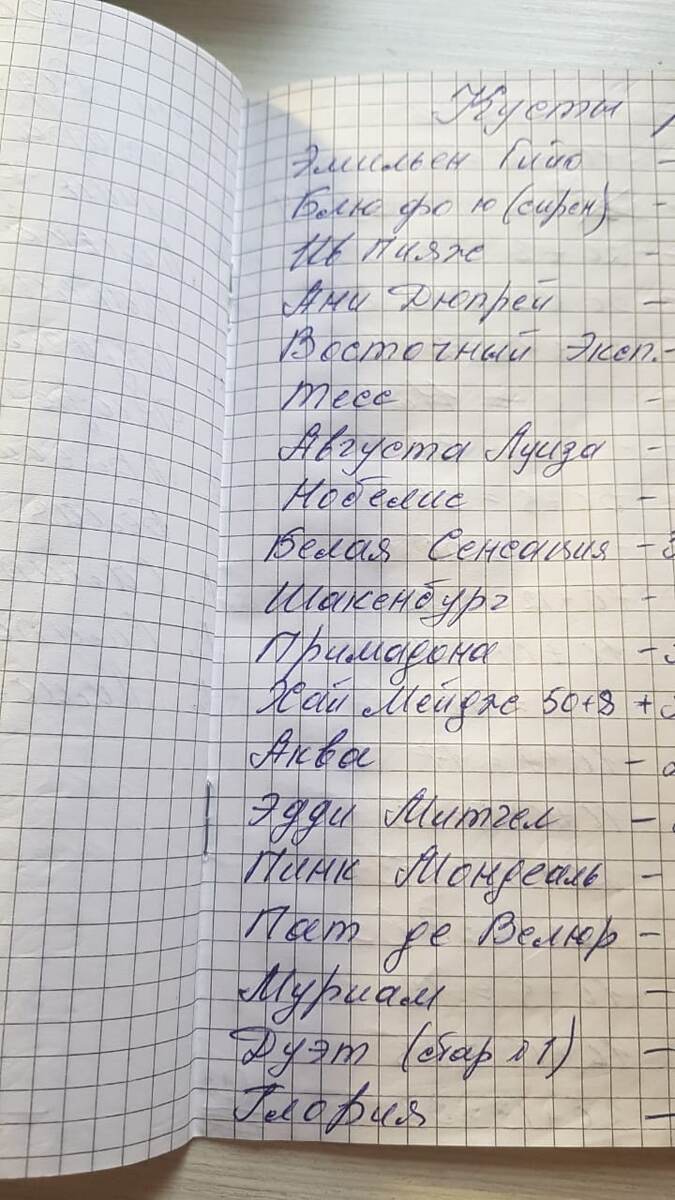 Кусты
Эмильен Гийо -
Блю фо ю (сирен) -
Ив Пияже -
Ани Дюпрей -
Восточный Эксп. -
Тесс -
Августа Луиза -
Нобелис -
Белая Сенсация - 3
Шакенбург -
Примадона - 3
Хай Мейдже 50+8 +
Аква -
Эдди Митчел -
Пинк Мондеаль -
Пат де Велюр -
Муриам -
Дуэт ( 1) -
Глория -